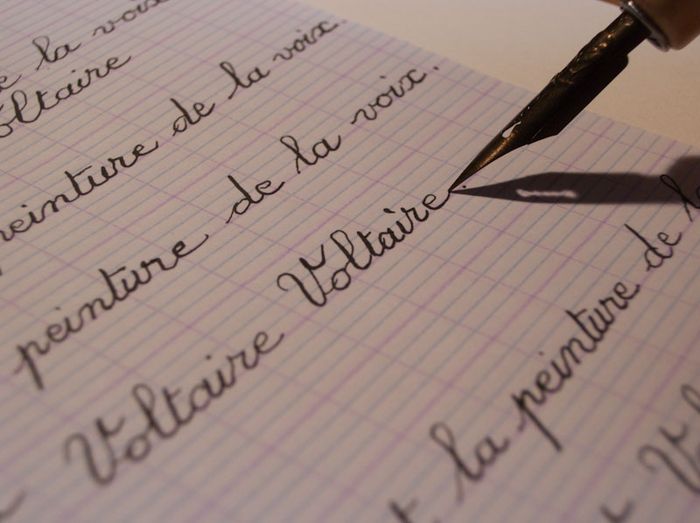 la voix
Voltaire
peinture de la voix.
peinture de la voix.
Voltaire Voltaire.
la peinture de